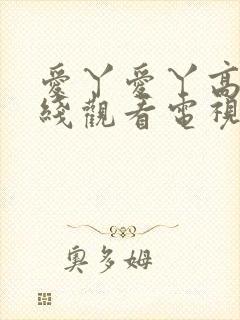 愛丫愛丫高
綫觀看電視
奧多姆